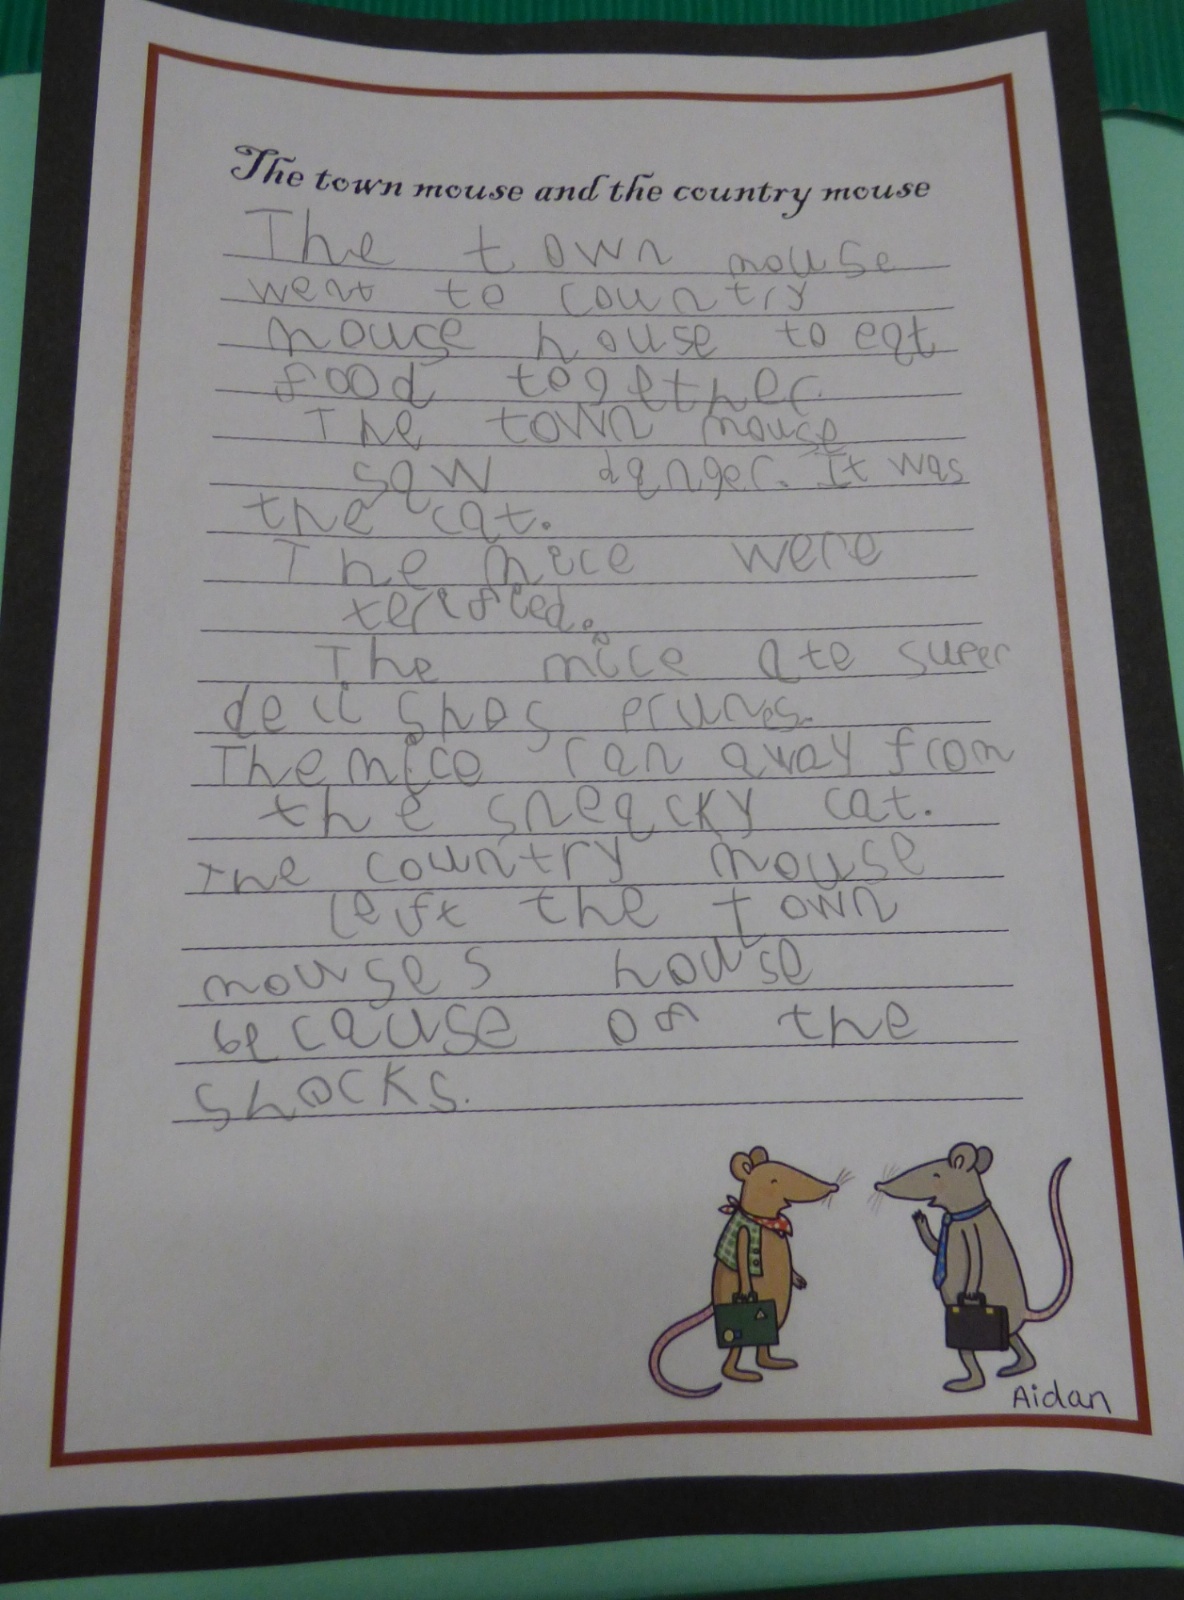 The town mouse and the country mouse
The town mouse
went to country
mouse house to eat
food together.
The town mouse
saw danger. It was
the cat.
The mice were
terrified.
The mice ate super
delishos prunes.
The mice ran away from
the sneacky cat.
The country mouse
left the town
mouses house
because of the
shocks.
Aidan